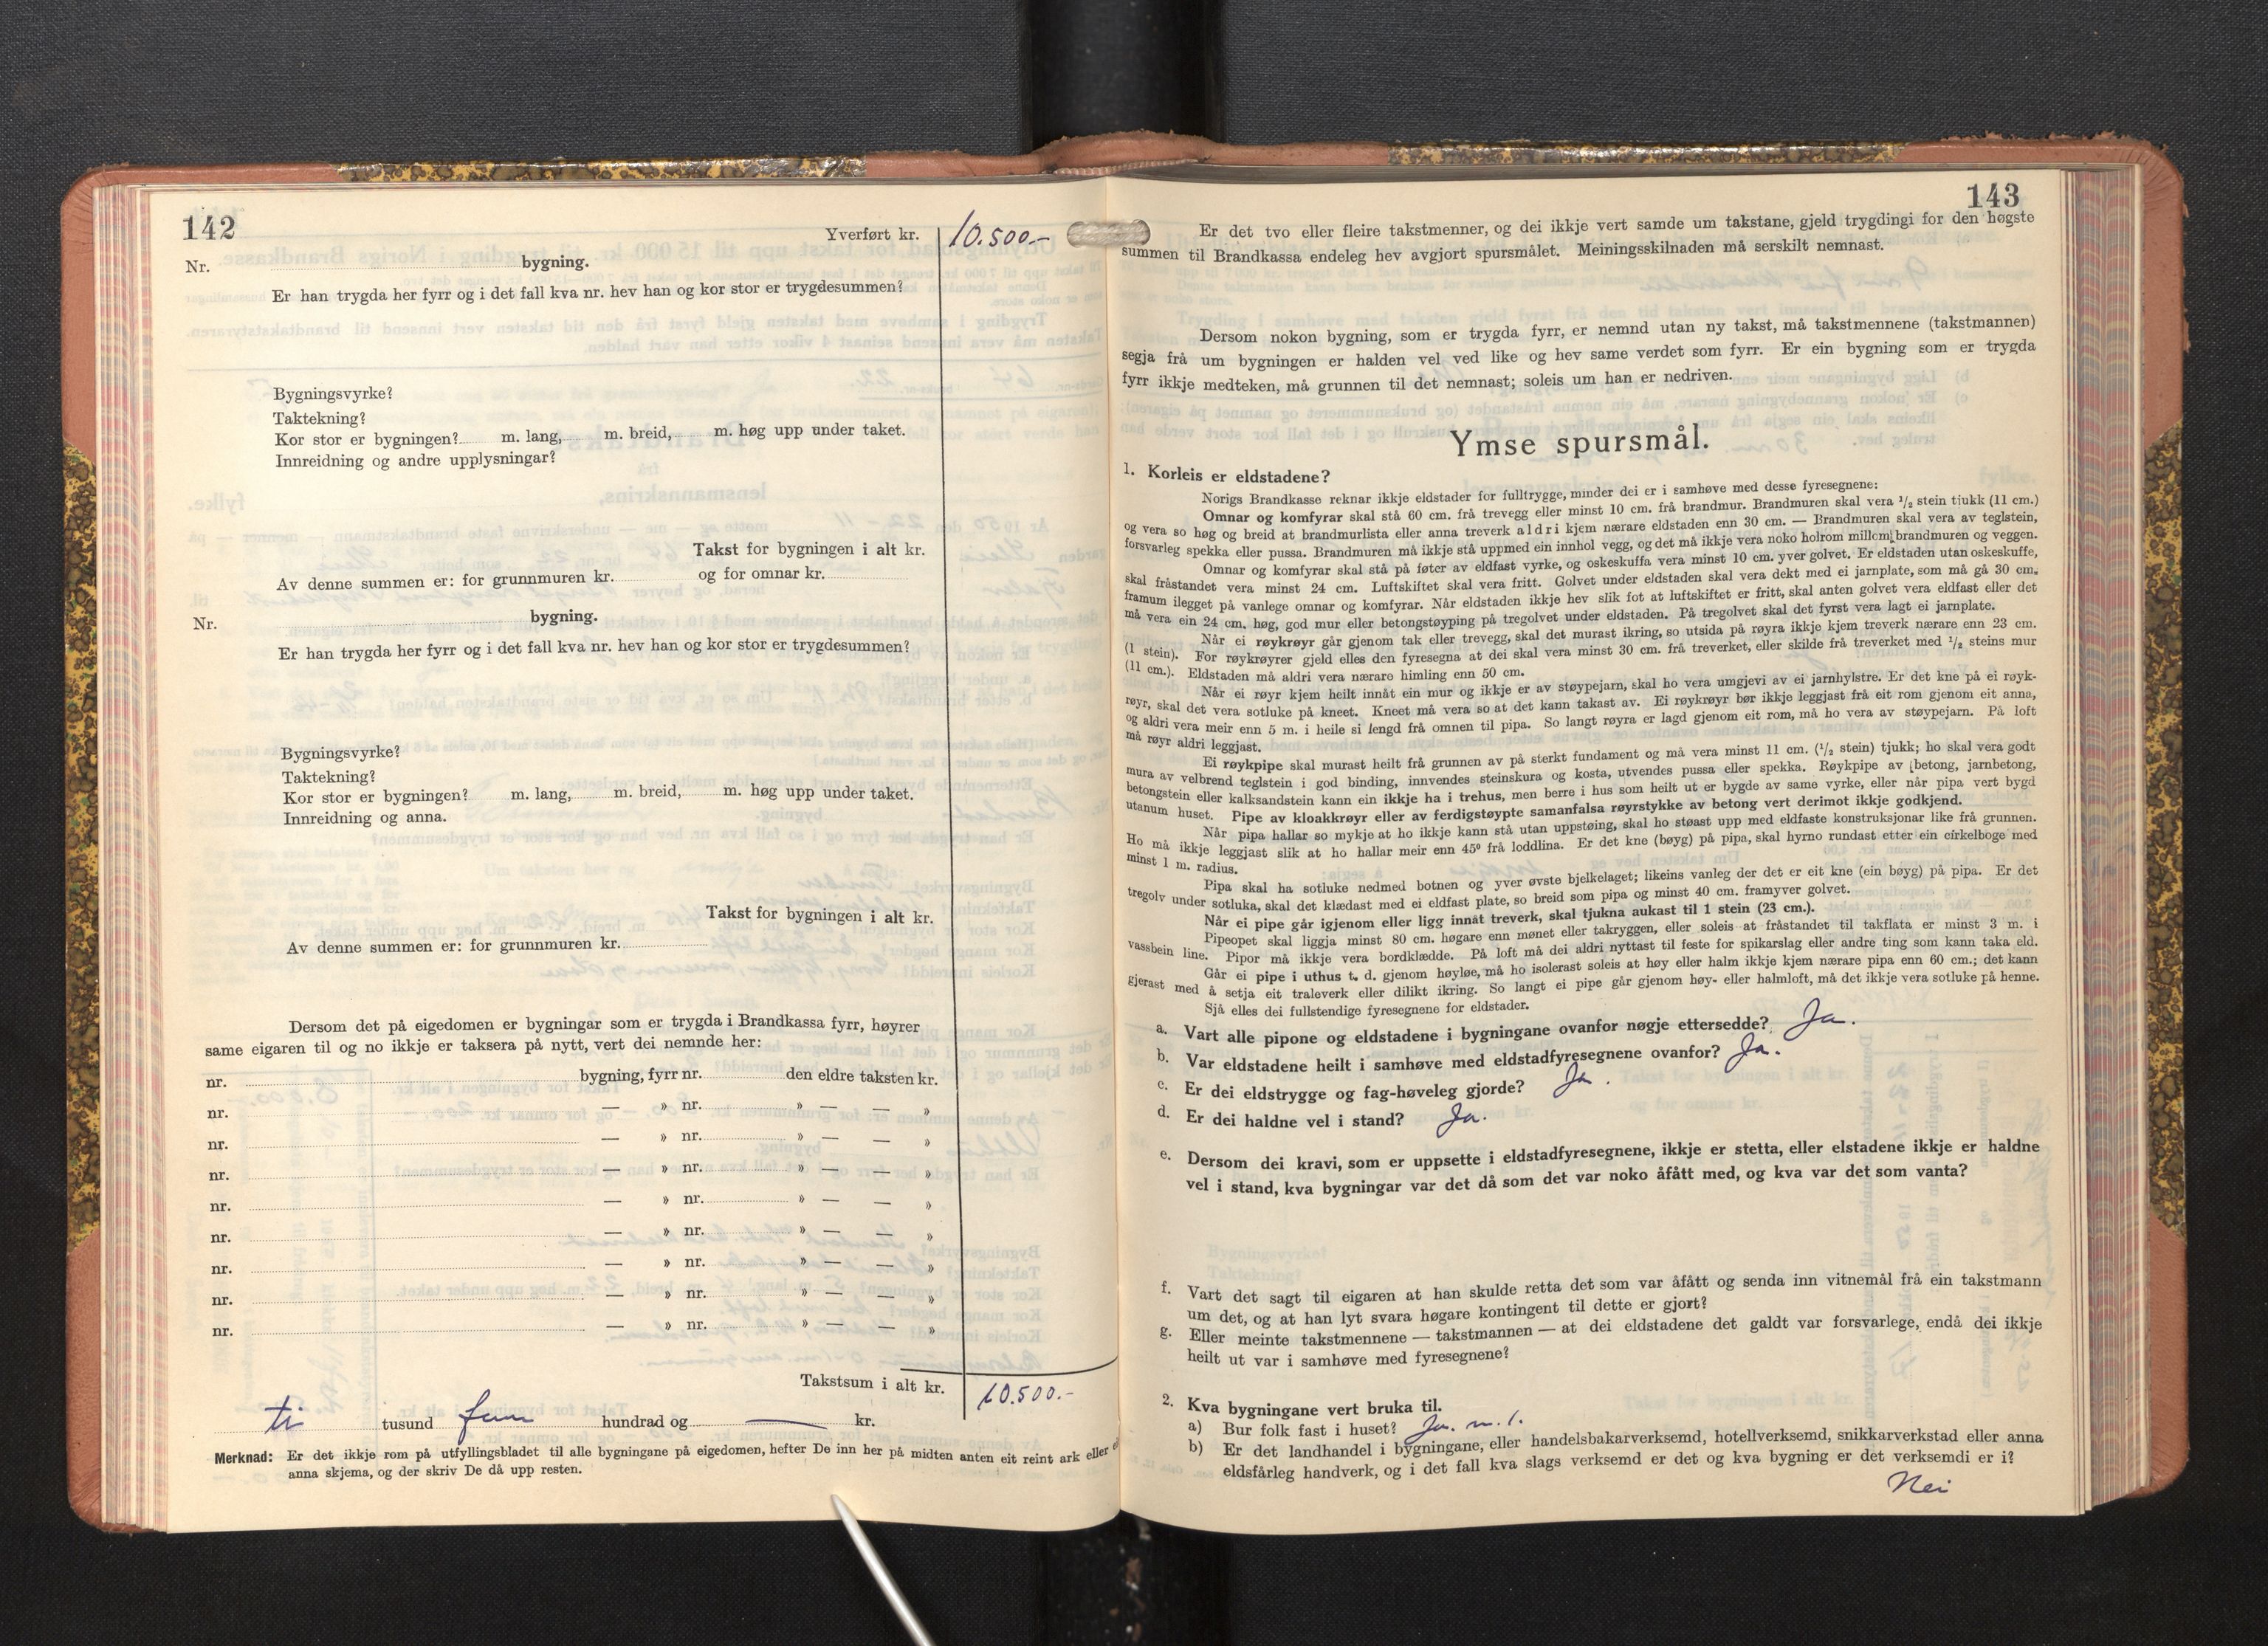 142
Yverført kr. 10.500.-
Nr. bygning.
Er han trygda her fyrr og i det fall kva nr. hev han og kor stor er trygdesummen?
Bygningsvyrke?
Taktekning?
Kor stor er bygningen? m. lang, m. breid, m. høg upp under taket.
Innreidning og andre upplysningar?
Takst for bygningen i alt kr.
Av denne summen er: for grunnmuren kr. og for omnar kr.
Nr. bygning.
Er han trygda her fyrr og i det fall kva nr. hev han og kor stor er trygdesummen?
Bygningsvyrke?
Taktekning?
Kor stor er bygningen? m. lang, m. breid, m. høg upp under taket.
Innreidning og anna.
Takst for bygningen i alt kr.
Av denne summen er: for grunnmuren kr.
Dersom det på eigedomen er bygningar som er trygda i Brandkassa fyrr, høyrer
same eigaren til og no ikkje er taksera på nytt, vert dei nemnde her:
nr. bygning, fyrr nr. den eldre taksten kr.
nr. — » nr. » — — »
nr. — » nr. » — — »
nr. — » nr. » — — »
nr. — » nr. » — — »
nr. — » nr. » — — »
nr. — » nr. » — — »
nr. — » nr. » — — »
nr. — » nr. » — — »
Takstsum i alt kr. 10.500.-
ti tusund fem hundrad og — kr.
Merknad: Er det ikkje rom på utfyllingsbladet til alle bygningane på eigedomen, hefter De inn her på midten anten eit reint ark eller
anna skjema, og der skriv De då upp resten.
143
Er det tvo eller fleire takstmenner, og dei ikkje vert samde um takstane, gjeld trygdingi for den høgste
summen til Brandkassa endeleg hev avgjort spursmålet. Meiningsskilnaden må serskilt nemnast.
Dersom nokon bygning, som er trygda fyrr, er nemnd utan ny takst, må takstmennene (takstmannen)
segja frå um bygningen er halden vel ved like og hev same verdet som fyrr. Er ein bygning som er trygda
fyrr ikkje medteken, må grunnen til det nemnast; soleis um han er nedriven.
Ymse spursmål.
1. Korleis er eldstadene?
Norigs Brandkasse reknar ikkje eldstader for fulltrygge, minder dei er i samhøve med desse fyresegnene:
Omnar og komfyrar skal stå 60 cm. frå trevegg eller minst 10 cm. frå brandmur. Brandmuren skal vera ½ stein tjukk (11 cm.)
og vera so høg og breid at brandmurlista eller anna treverk aldri kjem nærare eldstaden enn 30 cm. — Brandmuren skal vera av teglstein,
forsvarleg spekka eller pussa. Brandmuren må ikkje stå uppmed ein innhol vegg, og det må ikkje vera noko holrom millom brandmuren og veggen.
Omnar og komfyrar skal stå på føter av eldfast vyrke, og oskeskuffa vera minst 10 cm. yver golvet. Er eldstaden utan oskeskuffe,
skal fråstandet vera minst 24 cm. Luftskiftet skal vera fritt. Golvet under eldstaden skal vera dekt med ei jarnplate, som må gå 30 cm.
framum ilegget på vanlege omnar og komfyrar. Når eldstaden ikkje hev slik fot at luftskiftet er fritt, skal anten golvet vera eldfast eller det
må vera ein 24 cm. høg, god mur eller betongstøyping på tregolvet under eldstaden. På tregolvet skal det fyrst vera lagt ei jarnplate.
Når ei røykrøyr går gjenom tak eller trevegg, skal det murast ikring, so utsida på røyra ikkje kjem treverk nærare enn 23 cm.
(1 stein). For røykrøyrer gjeld elles den fyresegna at dei skal vera minst 30 cm. frå treverket, eller skilde frå treverket med ½ steins mur
(11 cm.). Eldstaden må aldri vera nærare himling enn 50 cm.
Når ei røyr kjem heilt innåt ein mur og ikkje er av støypejarn, skal ho vera umgjevi av ei jarnhylstre. Er det kne på ei røyk-
røyr, skal det vera sotluke på kneet. Kneet må vera so at det kann takast av. Ei røykrøyr bør ikkje leggjast frå eit rom gjenom eit anna,
og aldri vera meir enn 5 m. i heile si lengd frå omnen til pipa. So langt røyra er lagd gjenom eit rom, må ho vera av støypejarn. På loft
må røyr aldri leggjast.
Ei røykpipe skal murast heilt frå grunnen av på sterkt fundament og må vera minst 11 cm. (½ stein) tjukk; ho skal vera godt
mura av velbrend teglstein i god binding, innvendes steinskura og kosta, utvendes pussa eller spekka. Røykpipe av betong, jarnbetong,
betongstein eller kalksandstein kann ein ikkje ha i trehus, men berre i hus som heilt ut er bygde av same vyrke, eller når pipa vert bygd
utanum huset. Pipe av kloakkrøyr eller av ferdigstøypte samanfalsa røyrstykke av betong vert derimot ikkje godkjend.
Når pipa hallar so mykje at ho ikkje kann stå utan uppstøing, skal ho støast upp med eldfaste konstruksjonar like frå grunnen.
Ho må ikkje leggjast slik at ho hallar meir enn 45° frå loddlina. Er det kne (bøyg) på pipa, skal hyrno rundast etter ein cirkelboge med
minst 1 m. radius.
Pipa skal ha sotluke nedmed botnen og yver øvste bjelkelaget; likeins vanleg der det er eit kne (ein bøyg) på pipa. Er det
tregolv under sotluka, skal det klædast med ei eldfast plate, so breid som pipa og minst 40 cm. framyver golvet.
Når ei pipe går igjenom eller ligg innåt treverk, skal tjukna aukast til 1 stein (23 cm.).
Pipeopet skal liggja minst 80 cm. høgare enn mønet eller takryggen, eller soleis at fråstandet til takflata er minst 3 m. i
vassbein line. Pipor må ikkje vera bordklædde. På loft må dei aldri nyttast til feste for spikarslag eller andre ting som kann taka eld.
Går ei pipe i uthus t. d. gjenom høyløe, må ho isolerast soleis at høy eller halm ikkje kjem nærare pipa enn 60 cm.; det kann
gjerast med å setja eit traleverk eller dilikt ikring. So langt ei pipe går gjenom høy- eller halmloft, må det ikkje vera sotluke på henne.
Sjå elles dei fullstendige fyresegnene for eldstader.
a. Vart alle pipone og eldstadene i bygningane ovanfor nøgje ettersedde? Ja.
b. Var eldstadene heilt i samhøve med eldstadfyresegnene ovanfor? Ja.
c. Er dei eldstrygge og fag-høveleg gjorde? Ja.
d. Er dei haldne vel i stand? Ja.
e. Dersom dei kravi, som er uppsette i eldstadfyresegnene, ikkje er stetta, eller elstadene ikkje er haldne
vel i stand, kva bygningar var det då som det var noko åfått med, og kva var det som vanta?
f. Vart det sagt til eigaren at han skulde retta det som var åfått og senda inn vitnemål frå ein takstmann
um det, og at han lyt svara høgare kontingent til dette er gjort?
g. Eller meinte takstmennene — takstmannen — at dei eldstadene det galdt var forsvarlege, endå dei ikkje
heilt ut var i samhøve med fyresegnene?
2. Kva bygningane vert bruka til.
a) Bur folk fast i huset? Ja. m. 1.
b) Er det landhandel i bygningane, eller handelsbakarverksemd, hotellverksemd, snikkarverkstad eller anna
eldsfårleg handverk, og i det fall kva slags verksemd er det og kva bygning er det verksemdi er i?
Nei